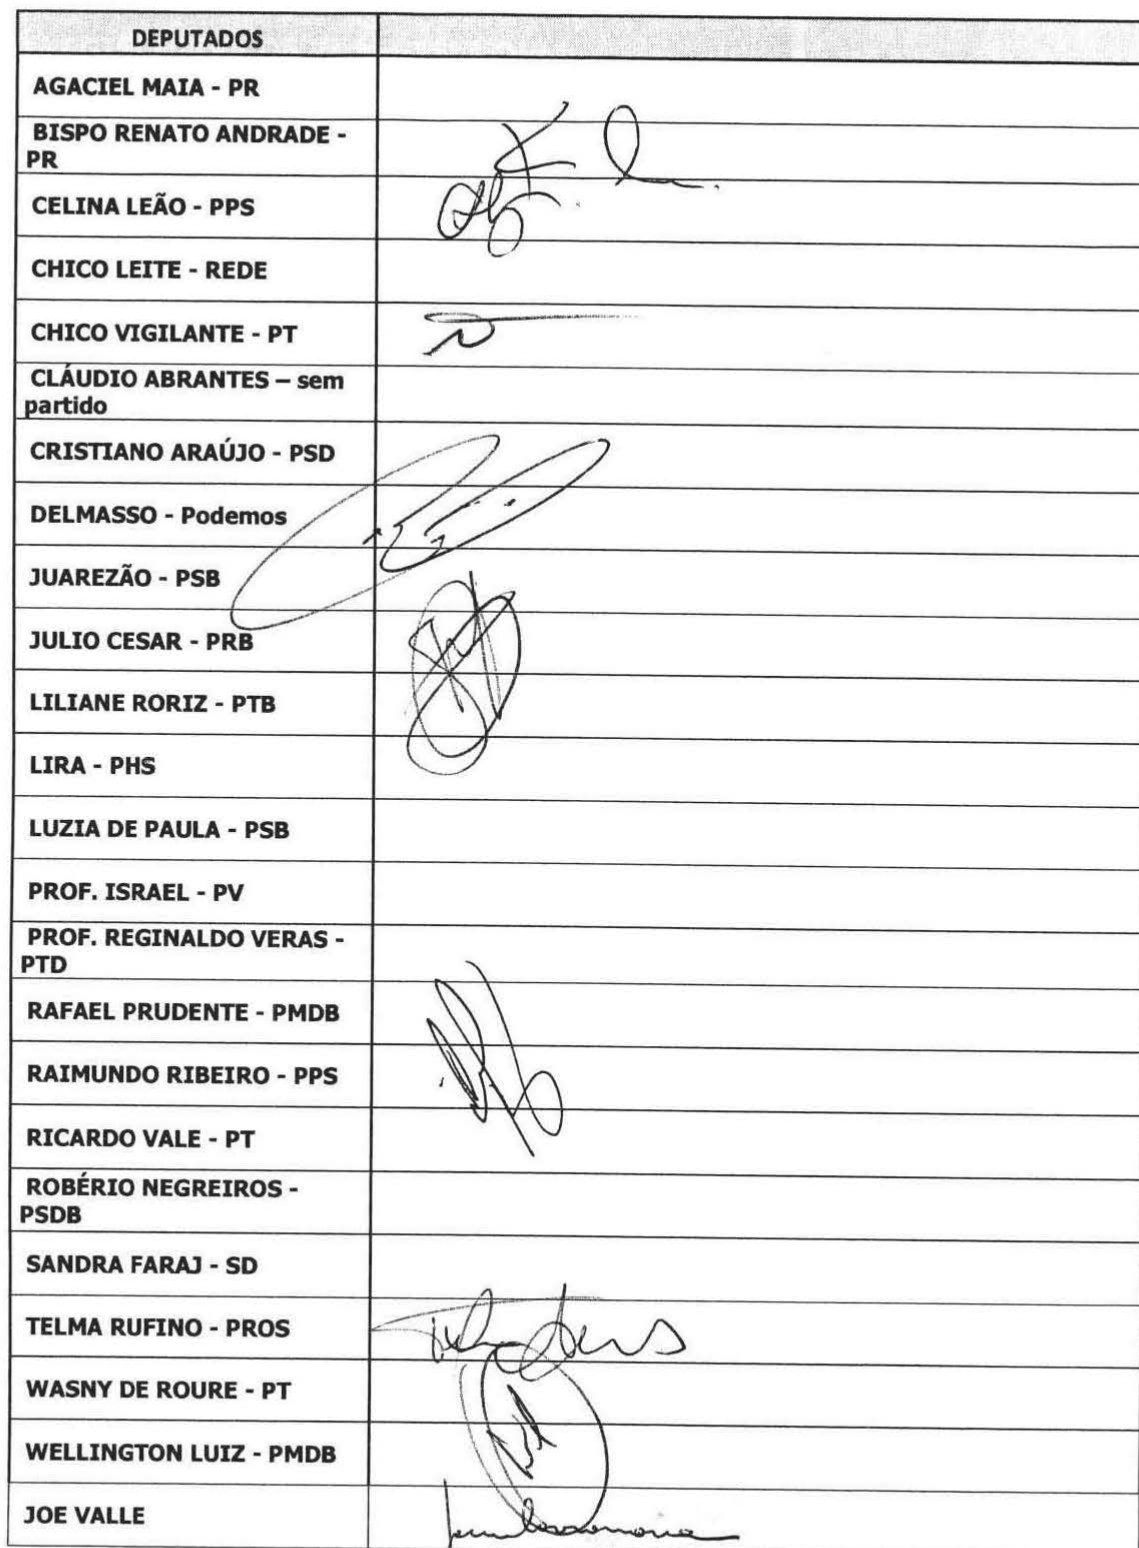 DEPUTADOS
AGACIEL MAIA - PR
BISPO RENATO ANDRADE -
PR
CELINA LEÃO - PPS
CHICO LEITE - REDE
CHICO VIGILANTE - PT
CLÁUDIO ABRANTES – sem
partido
CRISTIANO ARAÚJO - PSD
DELMASSO - Podemos
JUAREZÃO - PSB
JULIO CESAR - PRB
LILIANE RORIZ - PTB
LIRA - PHS
LUZIA DE PAULA - PSB
PROF. ISRAEL - PV
PROF. REGINALDO VERAS -
PTD
RAFAEL PRUDENTE - PMDB
RAIMUNDO RIBEIRO - PPS
RICARDO VALE - PT
ROBÉRIO NEGREIROS -
PSDB
SANDRA FARAJ - SD
TELMA RUFINO - PROS
WASNY DE ROURE - PT
WELLINGTON LUIZ - PMDB
JOE VALLE